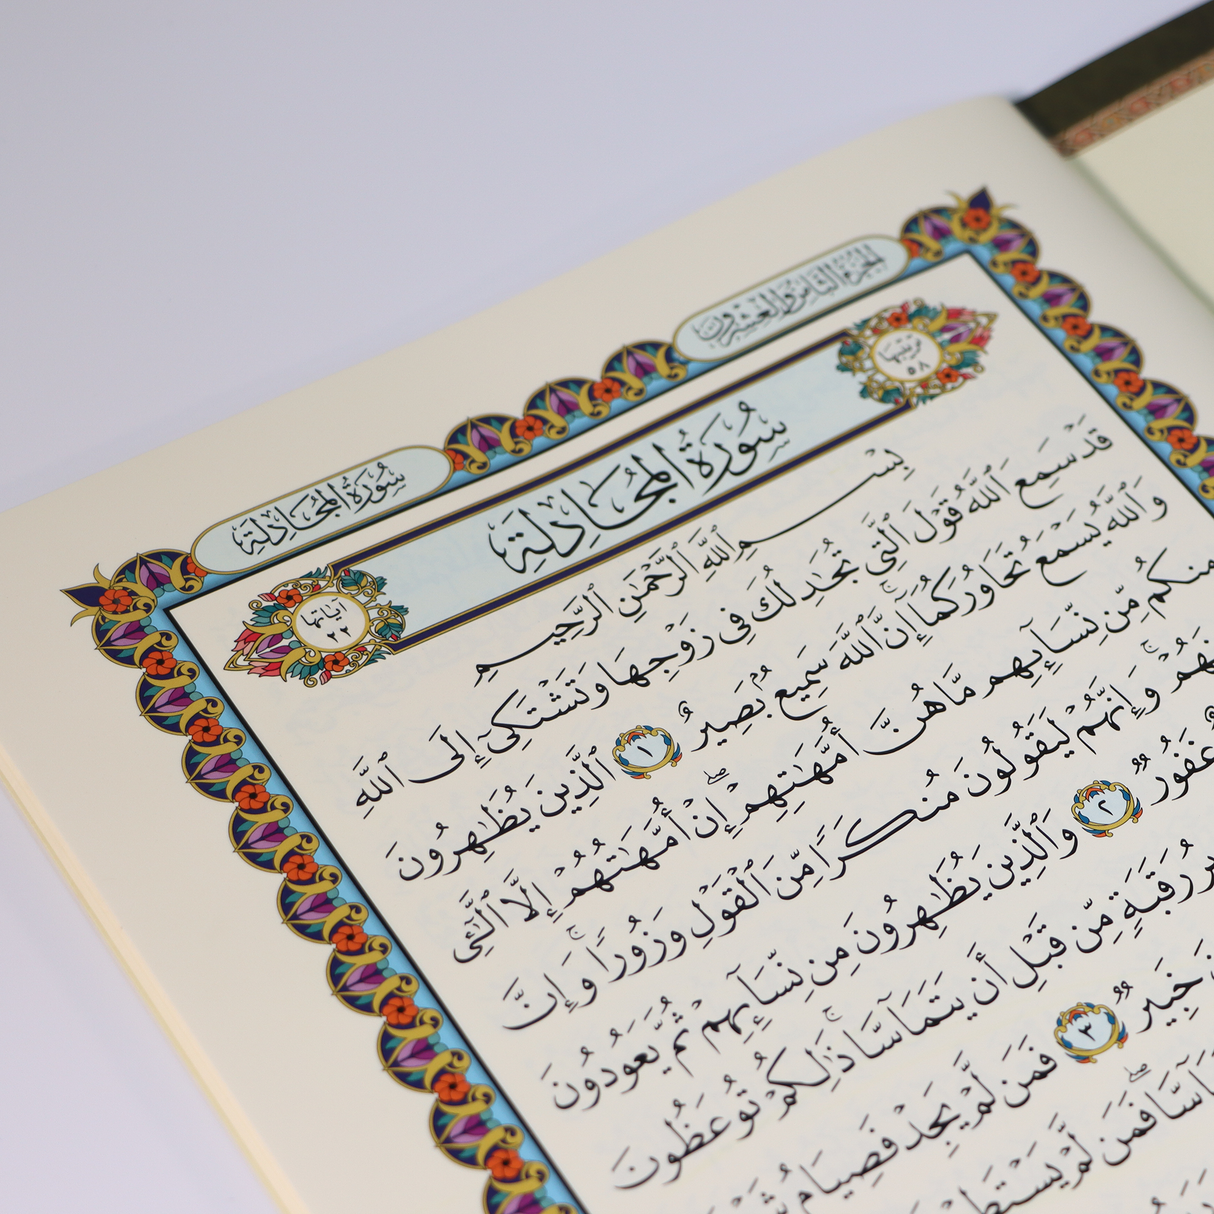 الجُزْءُ الثَّامِنُ وَالْعِشْرُونَ
سُورَةُ المُجَادلَةِ
تَرتيبُهَا ٥٨
سُورَةُ المُجَادلَةِ
آيَاتُهَا ٢٢
بِسْمِ ٱللَّهِ ٱلرَّحْمَٰنِ ٱلرَّحِيمِ
قَدْ سَمِعَ ٱللَّهُ قَوْلَ ٱلَّتِى تُجَٰدِلُكَ فِى زَوْجِهَا وَتَشْتَكِىٓ إِلَى ٱللَّهِ
وَٱللَّهُ يَسْمَعُ تَحَاوُرَكُمَآ ۚ إِنَّ ٱللَّهَ سَمِيعٌۢ بَصِيرٌ ١ ٱلَّذِينَ يُظَٰهِرُونَ
مِنكُم مِّن نِّسَآئِهِم مَّا هُنَّ أُمَّهَٰتِهِمْ ۖ إِنْ أُمَّهَٰتُهُمْ إِلَّا ٱلَّٰٓـِٔى
وَإِنَّهُمْ لَيَقُولُونَ مُنكَرًا مِّنَ ٱلْقَوْلِ وَزُورًا ۚ وَإِنَّ
غَفُورٌ ٢ وَٱلَّذِينَ يُظَٰهِرُونَ مِن نِّسَآئِهِمْ ثُمَّ يَعُودُونَ
رَقَبَةٍ مِّن قَبْلِ أَن يَتَمَآسَّا ۚ ذَٰلِكُمْ تُوعَظُونَ
خَبِيرٌ ٣ فَمَن لَّمْ يَجِدْ فَصِيَامُ
فَمَن لَّمْ يَسْتَطِعْ